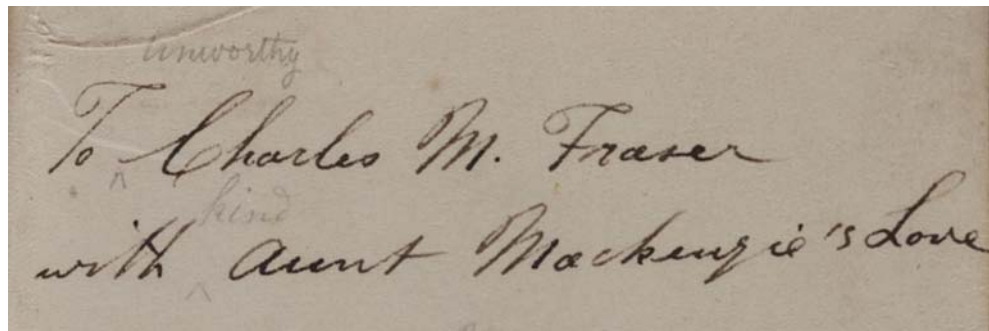 unworthy
To ^ Charles M. Fraser
kind
with ^ Aunt Mackenzie's Love